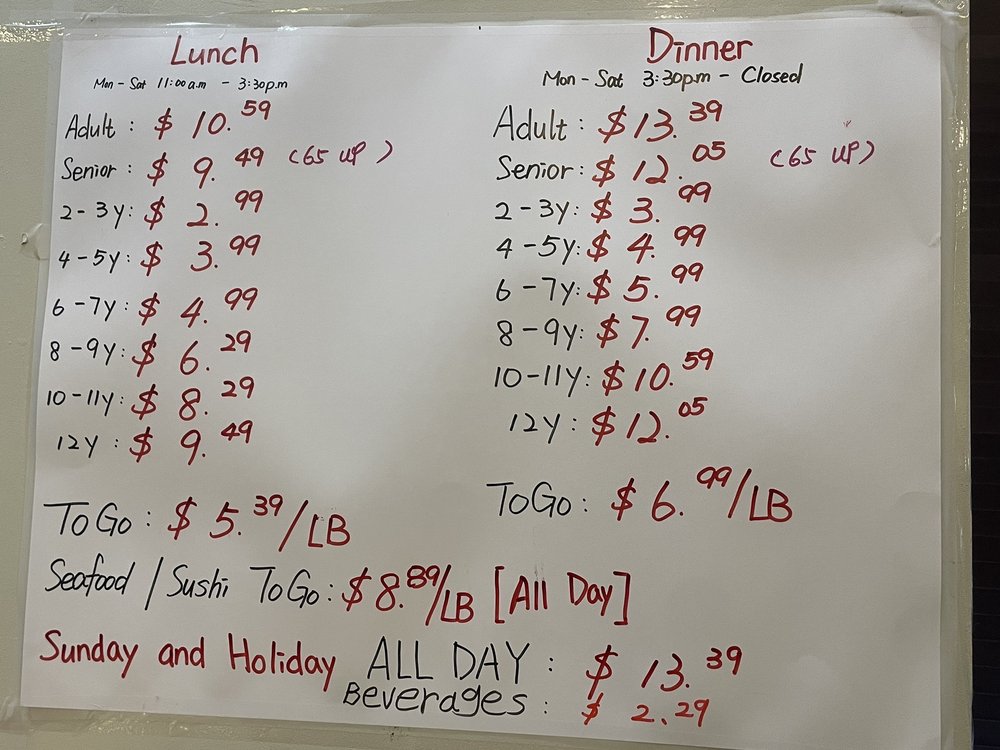 Lunch
Mon - Sat 11:00a.m - 3:30p.m
Adult : $ 10.59
Senior : $ 9.49 (65 UP)
2 - 3y: $ 2.99
4 - 5y: $ 3.99
6 - 7y: $ 4.99
8 - 9y: $ 6.29
10 - 11y: $ 8.29
12y : $ 9.49
To Go : $ 5.39/LB
Dinner
Mon - Sat 3:30p.m - Closed
Adult : $ 13.39
Senior: $ 12.05 (65 UP)
2 - 3y: $ 3.99
4 - 5y: $ 4.99
6 - 7y: $ 5.99
8 - 9y: $ 7.99
10 - 11y: $ 10.59
12y : $ 12.05
To Go : $ 6.99/LB
Seafood / Sushi To Go : $ 8.89/LB [All Day]
Sunday and Holiday ALL DAY : $ 13.39
Beverages : $ 2.29